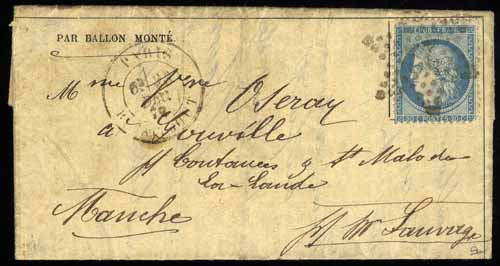 PAR BALLON MONTÉ.
PARIS
Mme Vve Oseray
à Gouville
pr Coutances & St Malo de
la-Lande
Manche
pr Mr Sauvage